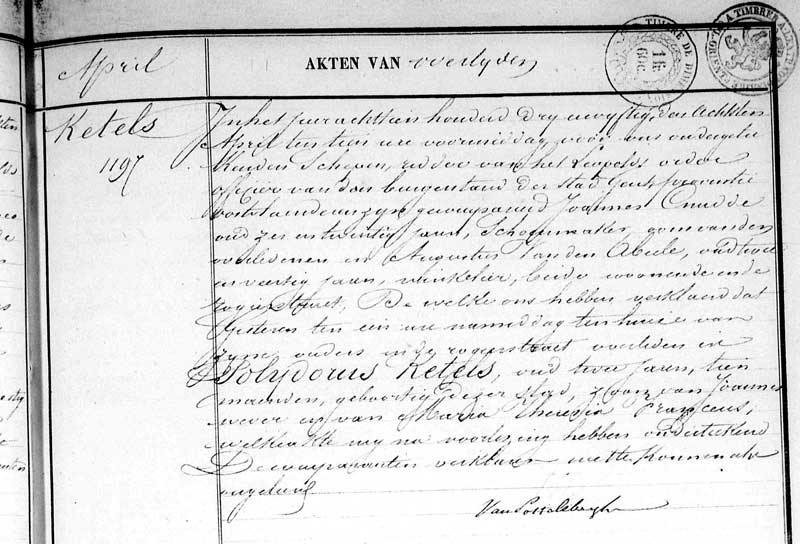 April
AKTEN VAN overlyden
Ketels
1197
In het jaer achttien honderd dry en vyftig, den Achtsten
April ten tien ure voormiddag, voor ons
Schepen, ridder van het Leopolds orden
officier van den burgerstand der stad Gent, provincie
Oostvlaenderen zyn gecompareerd Joannes
oud zes en twintig jaren, Schoenmaker, gom van den
overledenen en Augustus Van den Abeele, oud twee
en veertig jaren, winkelier, beide woonende in de
straet, De welke ons hebben verklaerd dat
Gisteren ten een ure namiddag ten huize van
zyne ouders in de straet overleden is
Polydorus Ketels, oud twee jaren, tien
maenden, geboortig dezer stad, zoon van Joannes
wever en van Maria Theresia
welke akte wy na voorlezing hebben onderteekend
De comparanten verklaren niet te konnen als
ongeleerd